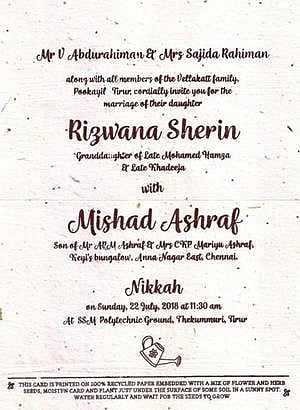 Mr V Abdurahiman & Mrs Sajida Rahiman
along with all members of the Vellakatt family,
Pookayil Tirur, cordially invite you for the
marriage of their daughter
Rizwana Sherin
Granddaughter of Late Mohamed Hamza
& Late Khadeeja
with
Mishad Ashraf
Son of Mr AVM Ashraf & Mrs CKP Mariyu Ashraf,
Keyi's bungalow, Anna Nagar East, Chennai.
Nikkah
on Sunday, 22 July, 2018 at 11:30 am
At SSM Polytechnic Ground, Thekummuri, Tirur
THIS CARD IS PRINTED ON 100% RECYCLED PAPER EMBEDDED WITH A MIX OF FLOWER AND HERB
SEEDS, MOISTEN CARD AND PLANT JUST UNDER THE SURFACE OF SOME SOIL IN A SUNNY SPOT.
WATER REGULARLY AND WAIT FOR THE SEEDS TO GROW